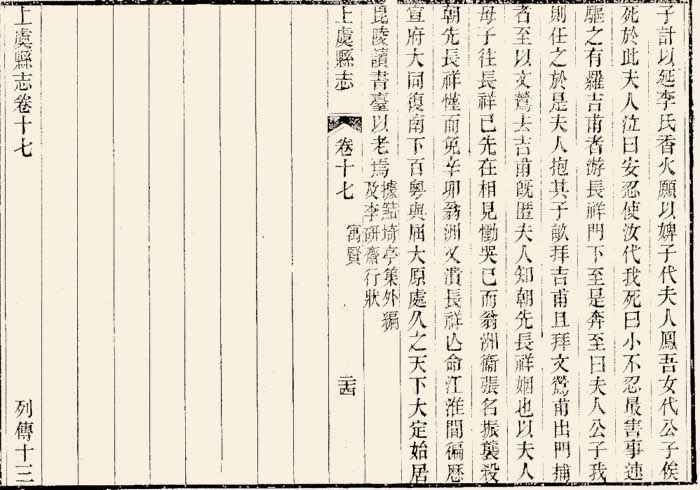 子計以延李氏香火願以婢子代夫人鳳吾女代公子俟
死於此夫人泣曰安忍使汝代我死曰小不忍最害事速
驅之有羅吉甫者游長祥門下至是奔至曰夫人公子我
則任之於是夫人抱其子畝拜吉甫且拜文鶯甫出門捕
者至以文鶯去吉甫旣匿夫人知朝先長祥姻也以夫人
母子往長祥已先在相見慟哭已而翁洲衞張名振襲殺
朝先長祥僅而免辛卯翁洲又潰長祥亾命江淮閒徧歷
宣府大同復南下百粤與屈大原處久之天下大定始居
毘陵讀書臺以老焉據鮚埼亭集外編
及李硏齋行狀
寓賢
上虞縣志
卷十七
二十四
上虞縣志卷十七
列傳十三